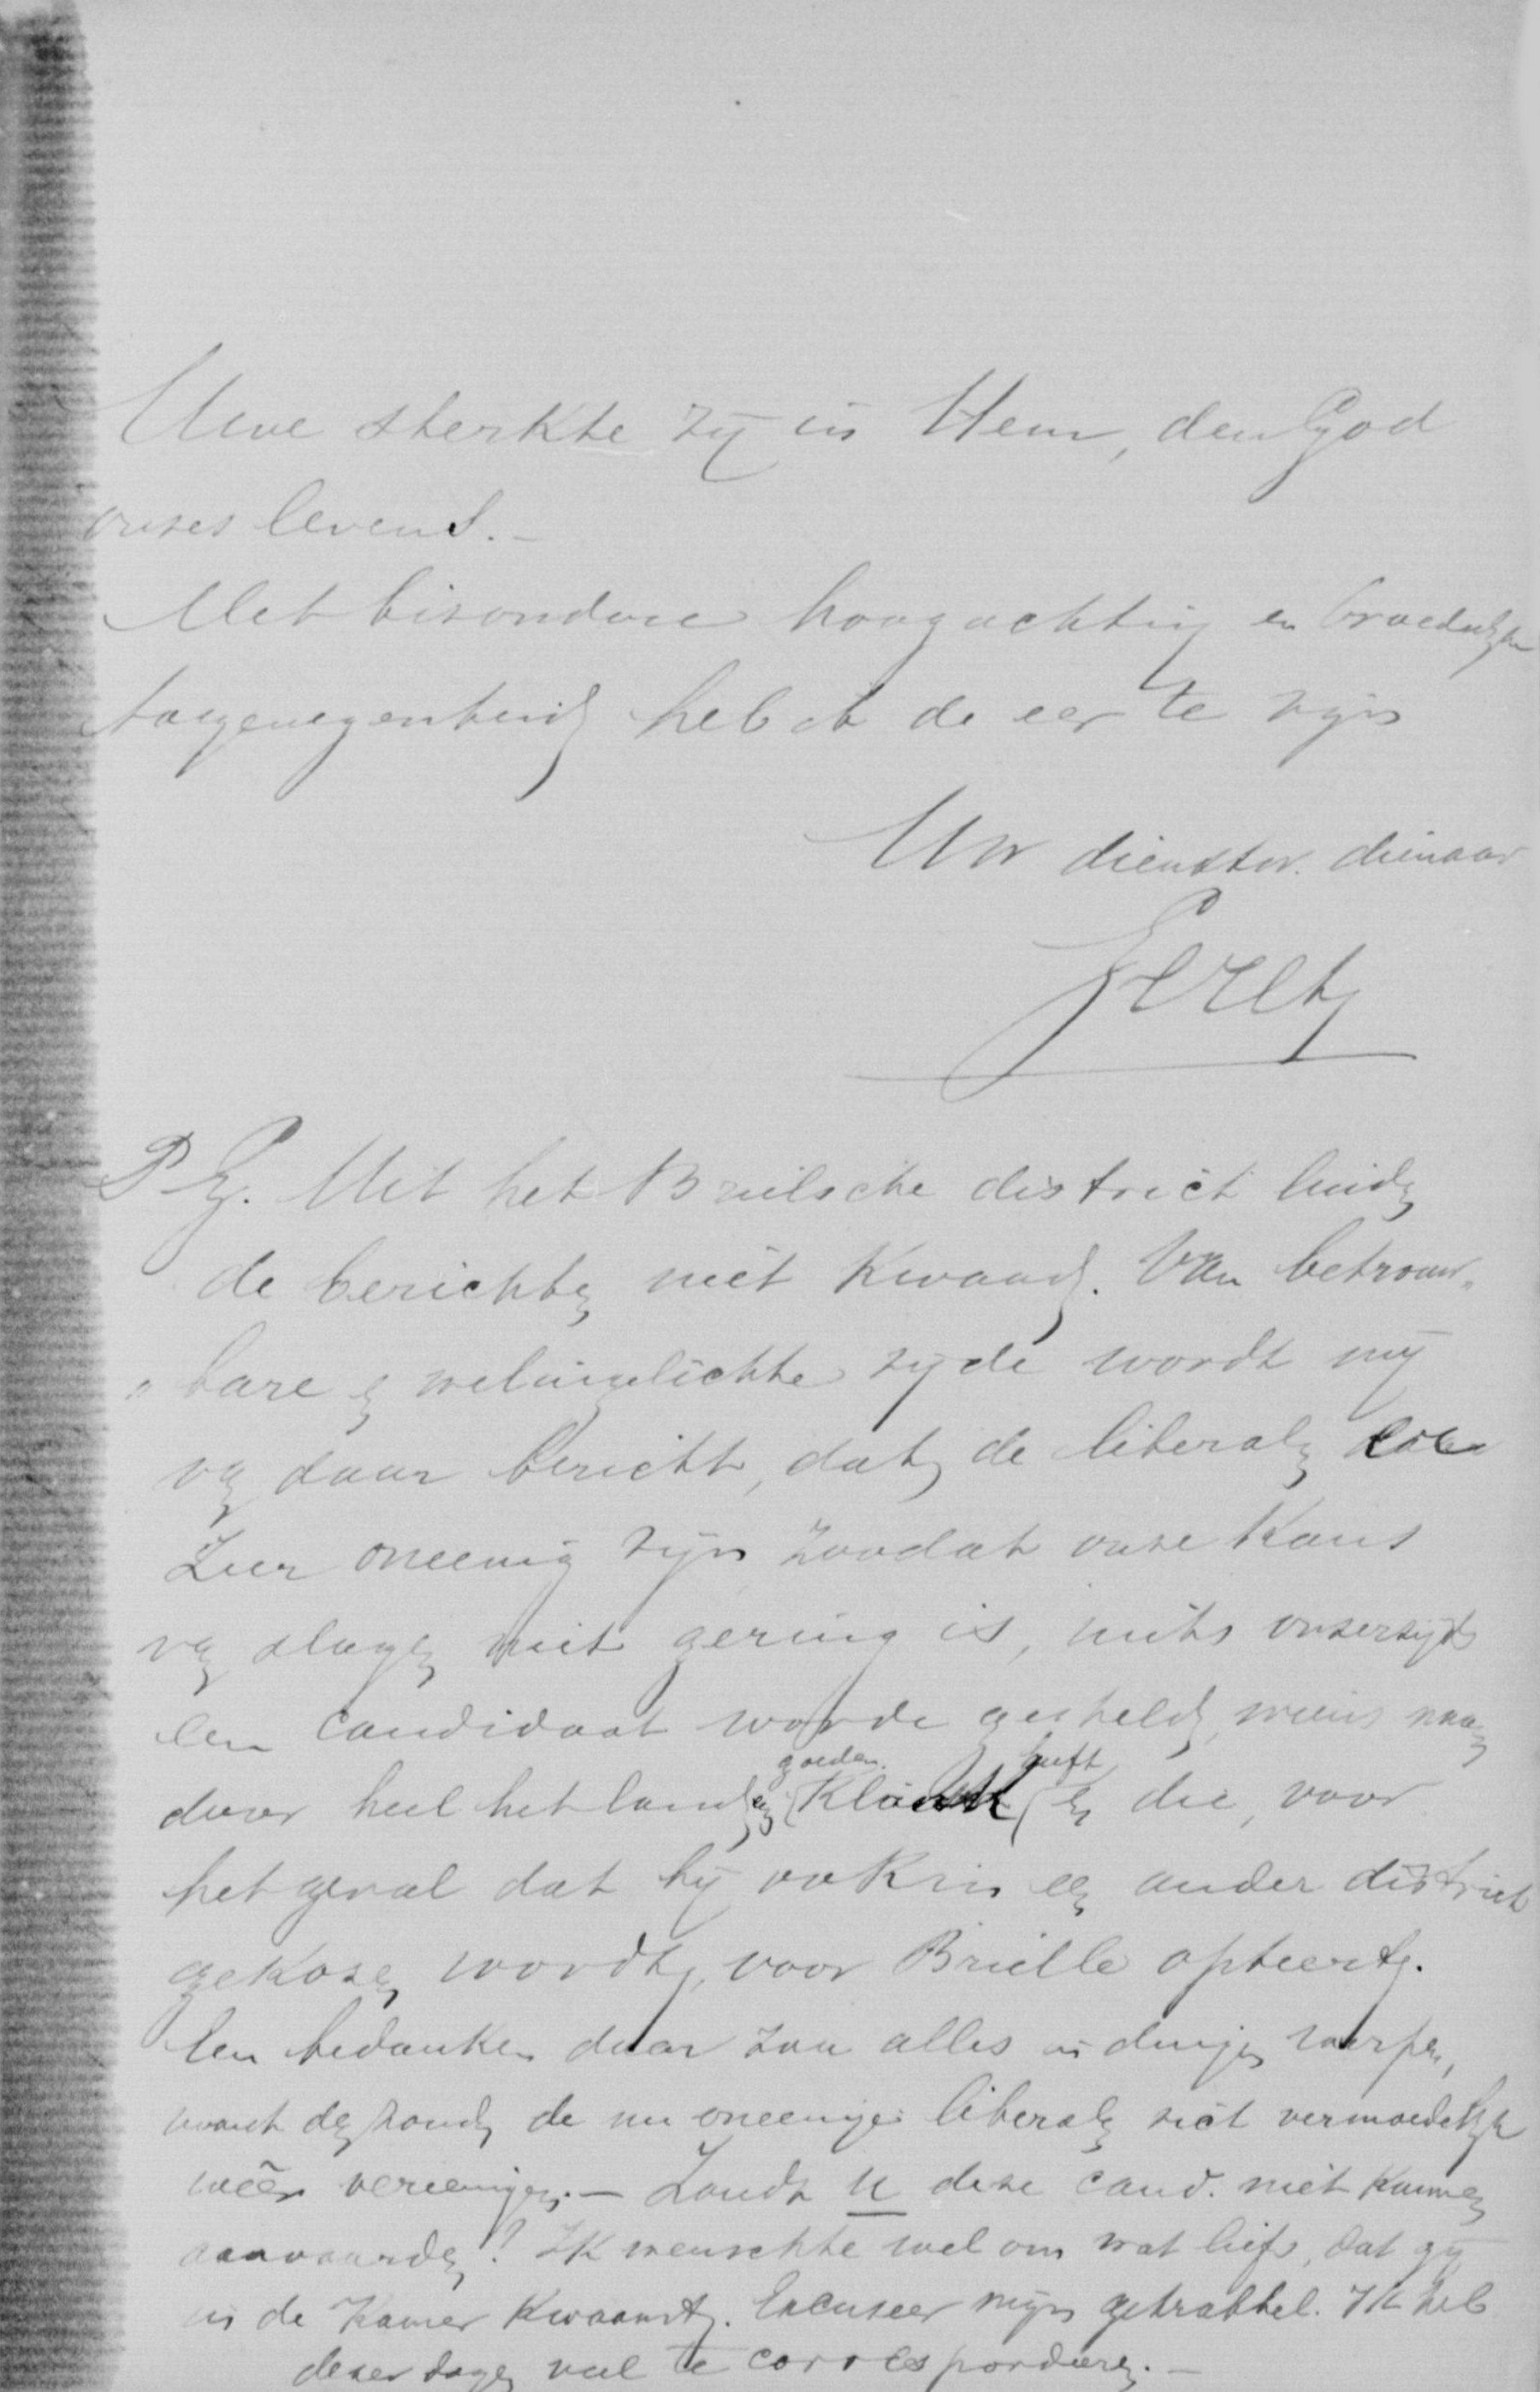 Uwe sterkte zij in Hem, den God
onzes levens. –
Met bizondere hoogachting en broederlijke
toegenegenheid heb ik de eer te zijn
Uw dienstw. dienaar
P.S. Uit het Brielsche district luiden
de berichten niet kwaad. Van betrouw„
„bare en welingelichte zijde wordt mij
van daar bericht, dat de liberalen
zeer oneenig zijn zoodat onze kans
van slagen niet gering is, mits onzerzijds
een candidaat worde gesteld, wiens naam
door heel het land een goeden klank heeft en die, voor
het geval dat hij ook in een ander district
gekozen wordt, voor Brielle opteert.
Een bedanken daar zou alles in duigen werpen,
want dan zouden de nu oneenige liberalen zich vermoedelijk
weêr vereenigen. – Zoudt U deze cand. niet kunnen
aanvaarden? Ik wenschte wel om wat liefs, dat gij
in de Kamer kwaamt. Excuseer mijn gekrabbel. Ik heb
dezer dagen veel te correspondeeren. –